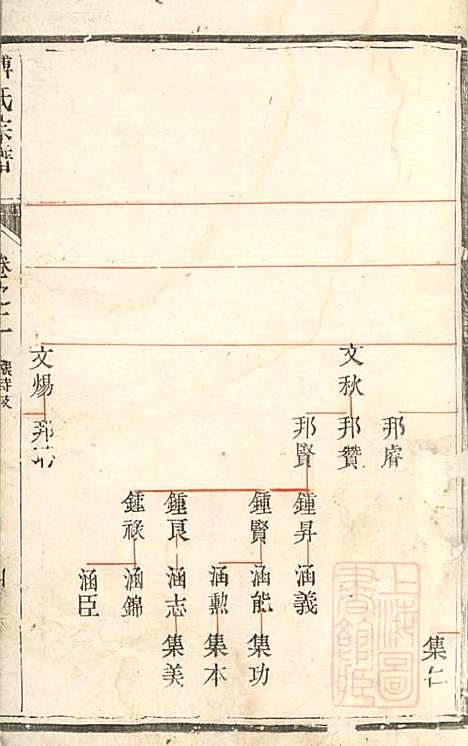 集仁
邦睿
文秋
邦贊
邦賢
鍾昇
涵義
鍾賢
涵能
集功
涵勳
集本
鍾良
涵志
集美
鍾祿
涵錦
涵臣
文煬
氏宗譜
卷之
上海圖書館藏